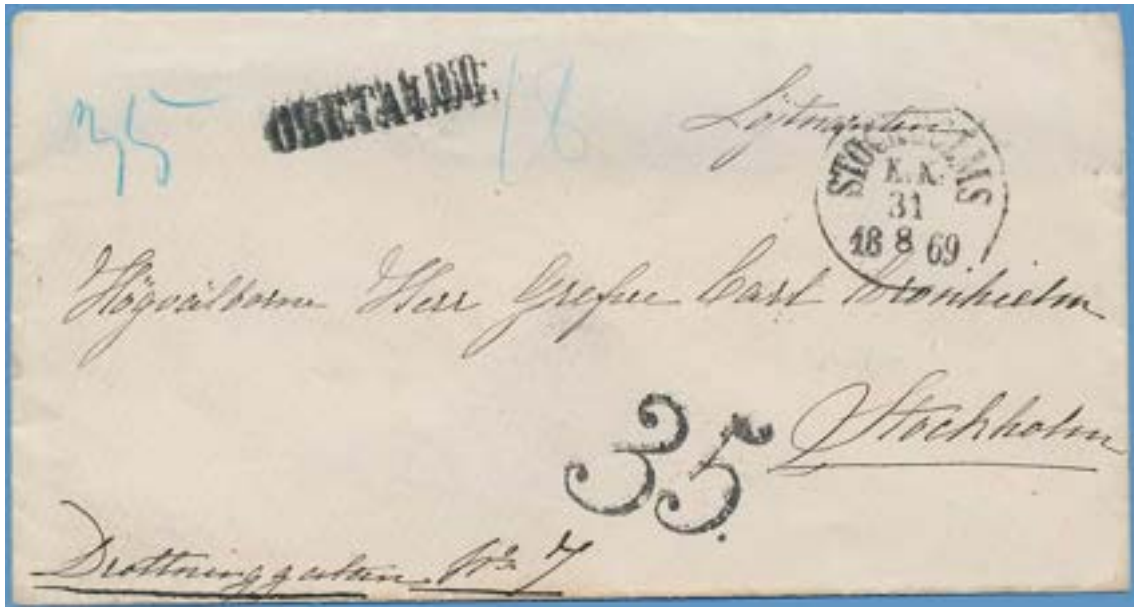 35 OBETALDT. 18
Löjtnanten
STOCKHOLMS
K. K.
31
18 8 69
Högvälborne Herr Grefve Carl Cronhielm
Stockholm
35.
Drottninggatan No 7